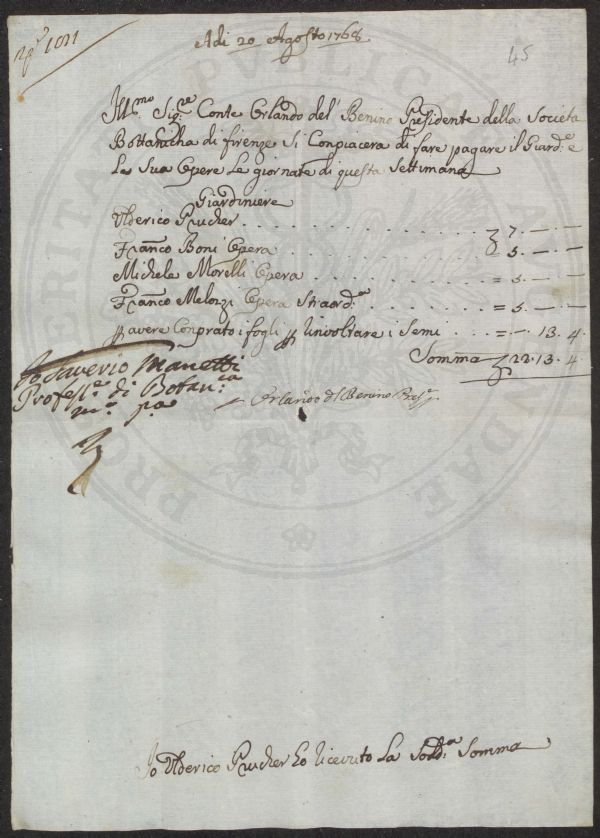 N.º 1011
45
Adi 20 Agosto 1768
Ill.mo Sig.re Conte Orlando del' Benino Presidente della Società
Bottanicha di firenze Si Conpiacera di fare pagare il Giard.e e
Le Sua Opere Le giornate di questa Settimana
Giardiniere
Ulderico Prucher . . . . . . . . 7 . — . —
Franco Boni Opera . . . . . . . 5 . — . —
Michele Morelli Opera . . . . . . . = 5 . — . —
Franco Melonzi Opera Straord.a . . . . . = 5 . — . —
p avere Conprato i fogli p Uinvoltare i Semi . . . = — . 13 . 4
Somma 22 . 13 . 4
Io Saverio Manetti
Profess.e di Botan.ca
m.o p.a
Orlando del Benino Pres.e
Io Ulderico Prucher ho riceuuto La Sodd.a Somma
PRO
PUBLICA